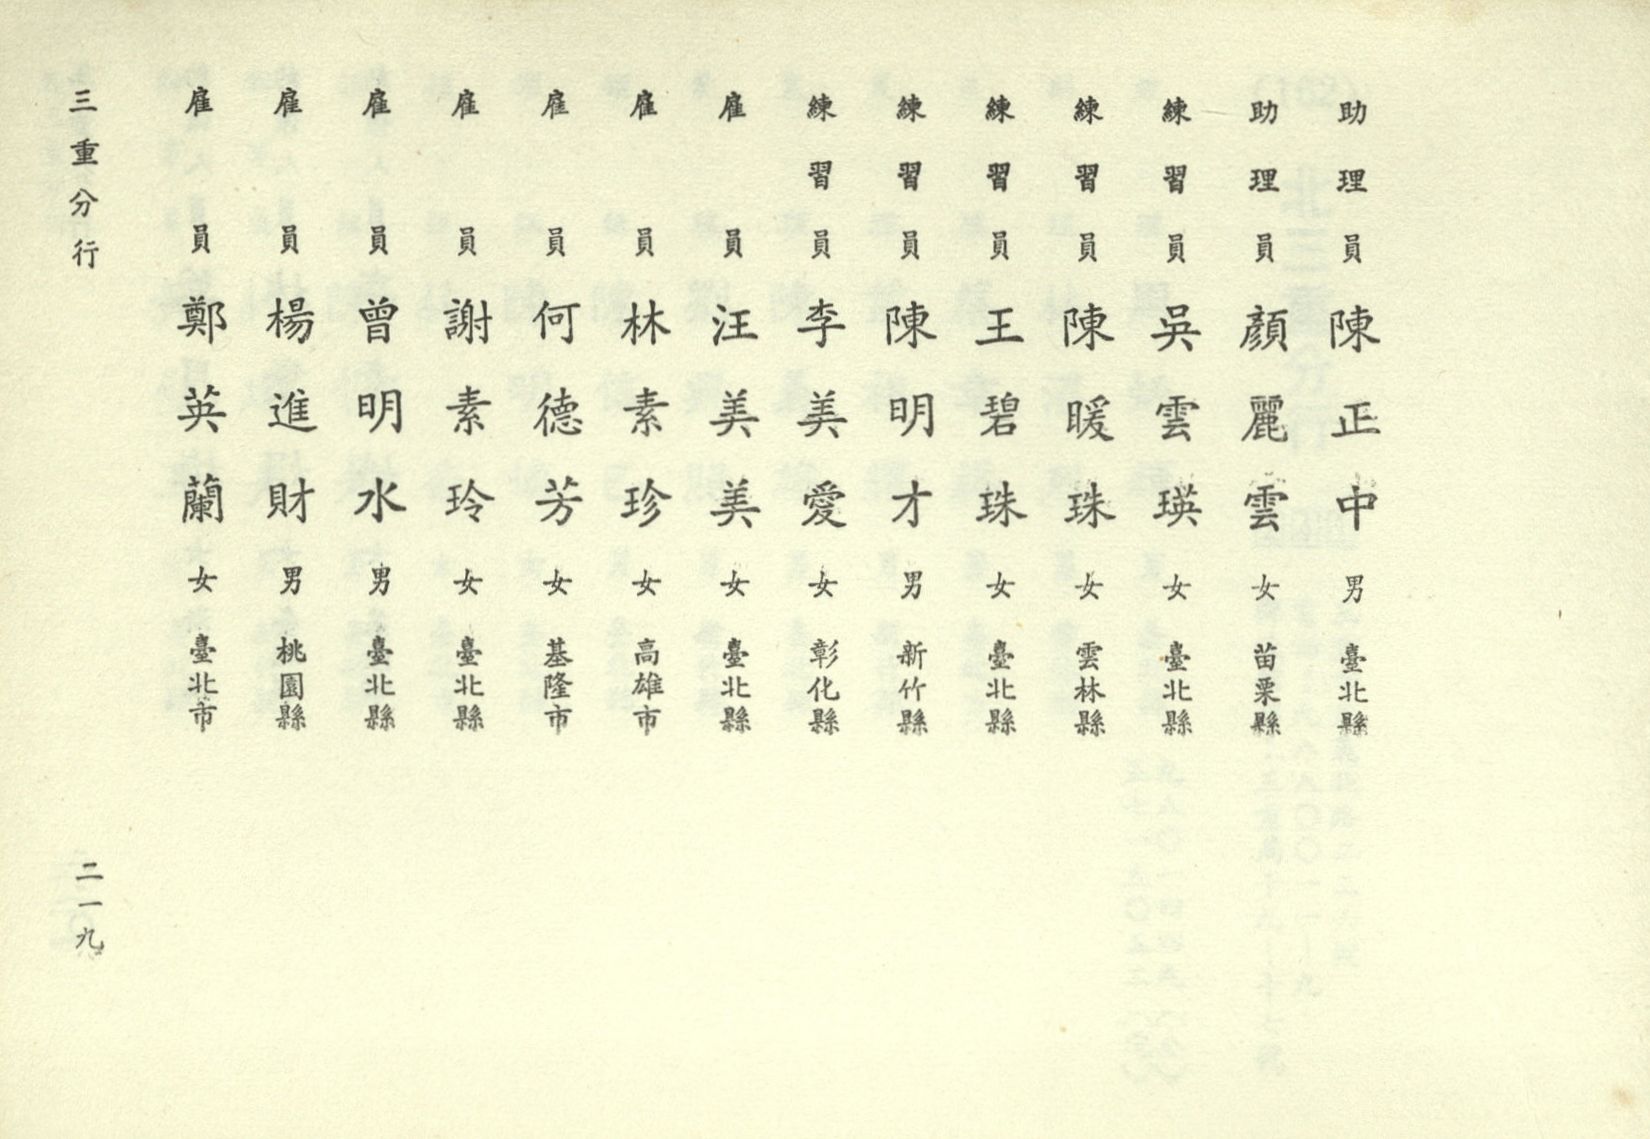 助理員 陳正中 男 臺北縣
助理員 顏麗雲 女 苗栗縣
練習員 吳雲瑛 女 臺北縣
練習員 陳暖珠 女 雲林縣
練習員 王碧珠 女 臺北縣
練習員 陳明才 男 新竹縣
練習員 李美愛 女 彰化縣
雇員 汪美美 女 臺北縣
雇員 林素珍 女 高雄市
雇員 何德芳 女 基隆市
雇員 謝素玲 女 臺北縣
雇員 曾明水 男 臺北縣
雇員 楊進財 男 桃園縣
雇員 鄭英蘭 女 臺北市
三重分行
二一九